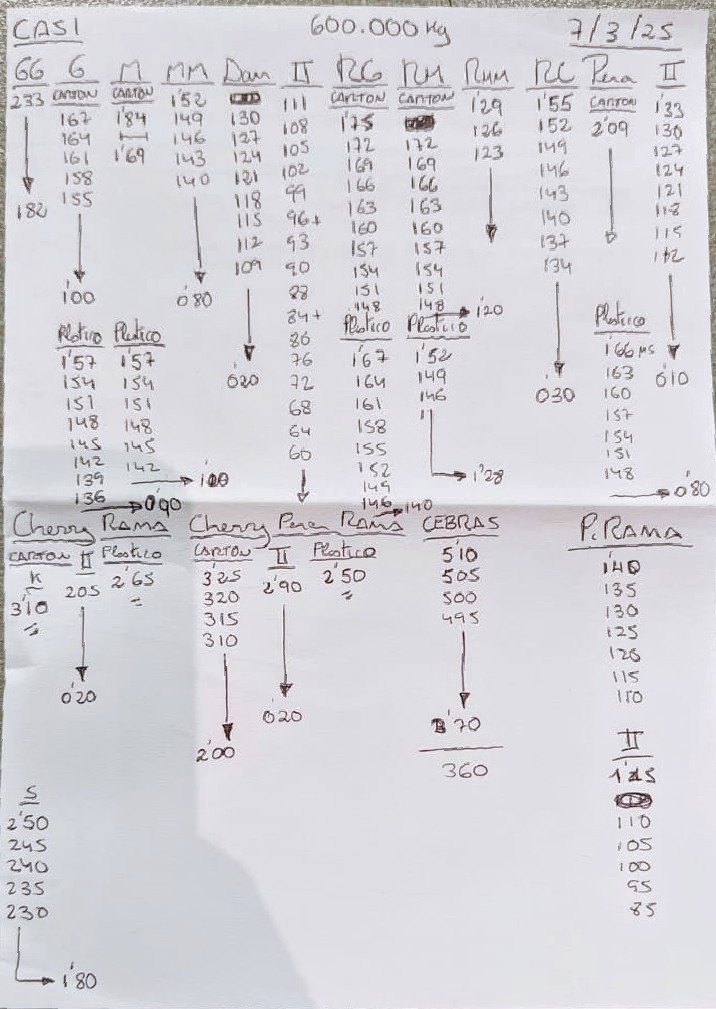 CASI 600.000 Kg 7/3/25
GG G M MM Dan II RG RM RMM RC Pera II
CARTON CARTON CARTON CARTON CARTON
233 167 1'84 1'52 130 111 1'75 172 1'29 1'55 2'09 1'33
164 1'69 149 127 108 172 169 126 152 130
161 146 124 105 169 166 123 149 127
158 143 121 102 166 163 146 124
182 155 140 118 99 163 160 143 121
115 96+ 160 157 140 118
112 93 157 154 137 115
109 90 154 151 134 112
1'00 0'80 88 151 148 1'20
84+ 148
Plastico Plastico 86 Plastico Plastico Plastico
1'57 1'57 0'20 76 1'67 1'52 0'30 1'66 MS 0'10
154 154 72 164 149 163
151 151 68 161 146 160
148 148 64 158 157
145 145 60 155 154
142 142 152 1'28 151
139 1'00 149 148
136 0'90 146 140 0'80
Cherry RAMA Cherry Pera RAMA CEBRAS P.RAMA
CARTON II Plastico CARTON II Plastico
K
3'10 205 2'65 325 2'90 2'50 5'10 1'40
320 505 135
315 500 130
310 495 125
120
115
110
0'20 2'00 0'20 70
360
II
S 1'15
2'50 110
245 105
240 100
235 95
230 85
1'80